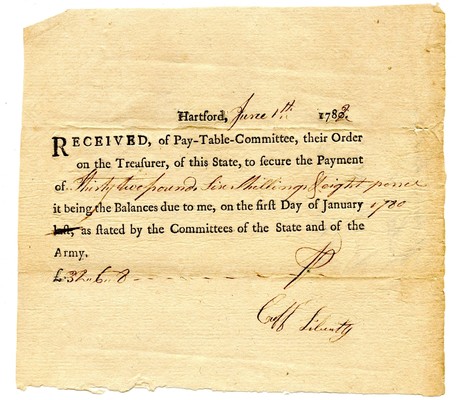 Hartford, June 1th 1782.
RECEIVED, of Pay-Table-Committee, their Order
on the Treasurer, of this State, to secure the Payment
of Thirty two pounds Six Shillings & eight pence
it being the Balances due to me, on the first Day of January 1780
last, as stated by the Committees of the State and of the
Army.
£ 32 " 6 " 8
Cuff Liberty